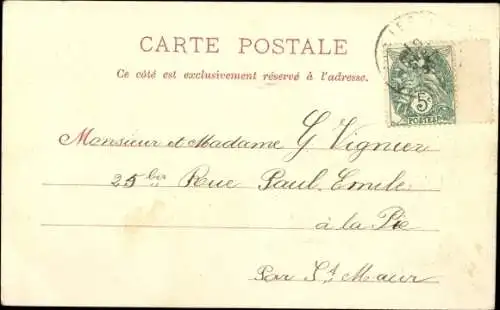 CARTE POSTALE
Ce côté est exclusivement réservé à l'adresse.
5c
POSTES
Monsieur et Madame G Vignier
25 bis Rue Paul Emile
à la Pie
Par St Maur